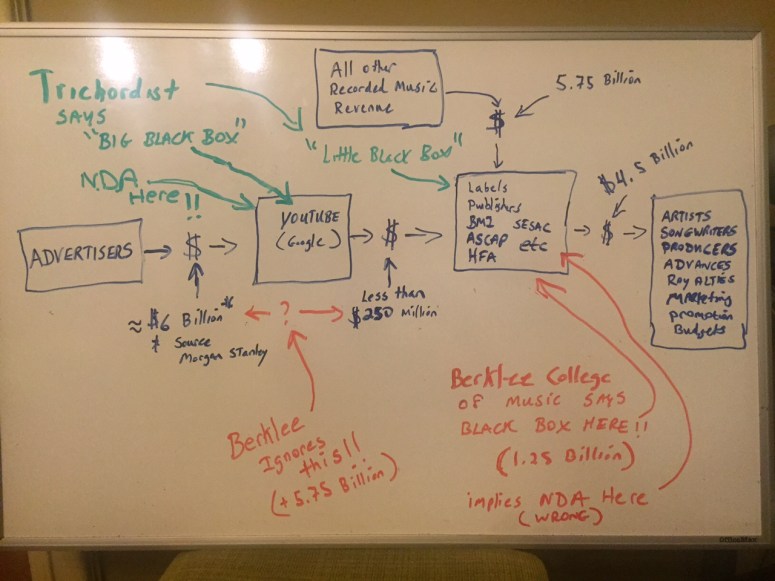 Trichordist
SAYS
"BIG BLACK BOX"
NDA
Here!!
All other
Recorded Music
Revenue
5.75 Billion
$
"Little Black Box"
$4.5 Billion
ADVERTISERS
$
YOUTUBE
(Google)
$
Labels
Publishers
BMI SESAC
ASCAP etc
HFA
$
ARTISTS
SONGWRITERS
PRODUCERS
ADVANCES
ROYALTIES
Marketing
promotion
Budgets
≈ $6 Billion*
* Source
Morgan Stanley
?
Less than
$250 Million
Berklee
Ignores
this!!
(+5.75 Billion)
Berklee College
OF MUSIC SAYS
BLACK BOX HERE!!
(1.25 Billion)
implies NDA Here
(WRONG)